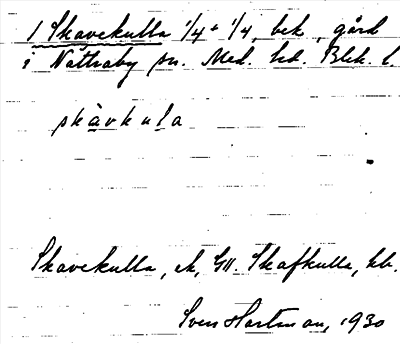 1 Skavekulla 1/4 + 1/4, bek., gård
i Nättraby sn. Med. hd. Blek. l.
skàvkula
Skavekulla, ek, GII. Skafkulla, kb.
Sven Hartman, 1930